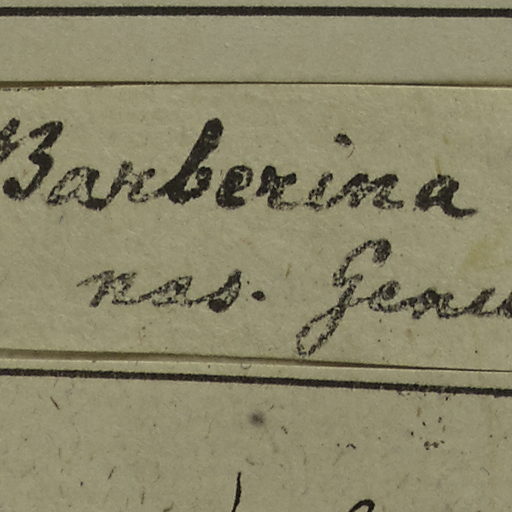 Barberina
nas. Genu